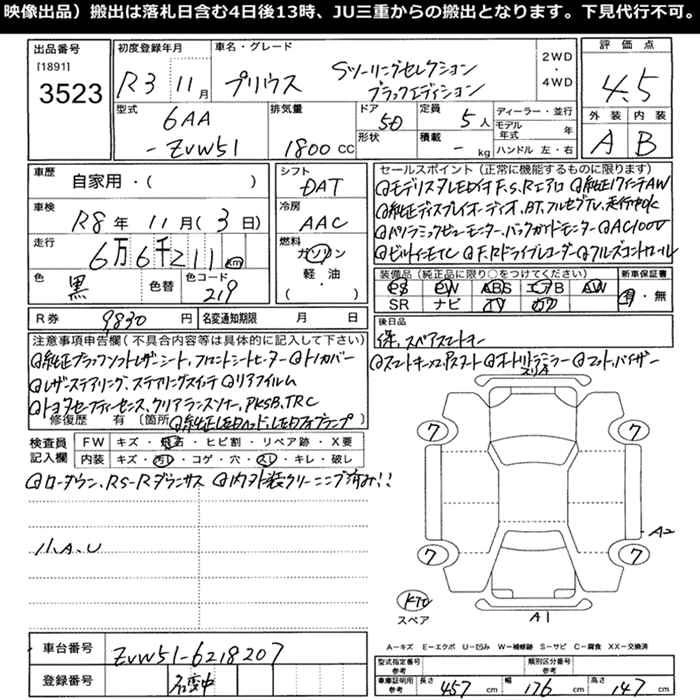 映像出品）搬出は落札日含む4日後13時、JU三重からの搬出となります。下見代行不可。
出品番号 [1891] 3523
初度登録年月 R3 11月
車名・グレード プリウス Sツーリングセレクション ブラックエディション
2WD・4WD
評価点 4.5
外装 A 内装 B
型式 6AA-ZVW51
排気量 1800 CC
ドア 5D 形状
定員 5人 積載 - kg
ディーラー・並行
モデル年式 年
ハンドル 左・右
車歴 自家用・( )
車検 R8年 11月(3日)
走行 6万6千211 km
色 黒 色替 色コード 219
シフト DAT
冷房 AAC
燃料 ガソリン 軽・油 ( )
セールスポイント（正常に機能するものに限ります）
モデリスタLEDイ付F.S.Rエアロ 純正17インチAW
純正ディスプレイオーディオ、BT、フルセグTV、走行中OK
パノラミックビューモニター、バックガイドモニター AC100V
ビルトインETC F.Rドライブレコーダー クルーズコントロール
装備品（純正品に限り○をつけてください） 新車保証書
PS PW ABS エアB AW 有・無
SR ナビ TV カワ
R券 9,830円 名変通知期限 月 日
後日品
保、スペアスマートキー
注意事項申告欄（不具合内容等は具体的に記入して下さい）
純正ブラックソフトレザーシート、フロントシートヒーター トノカバー
レザーステアリング、ステアリングスイッチ リアフィルム
トヨタセーフティーセンス、クリアランスソナー、PKSB、TRC
修復歴 有 (箇所 純正LEDヘッド、LEDフォグランプ
スマートキーX2、Pスタート オートリトラミラー フロアマット、バイザー
検査員記入欄 FW キズ・補合・ヒビ割・リペア跡・X要
内装 キズ・汚れ・コゲ・穴・スレ・キレ・破レ
ローダウン、RS-Rダウンサス 内外装クリーニング済み!!
小、A、U
7
7
7
7
A2
スペア
A1
A－キズ E－エクボ U－凹み W－補修跡 S－サビ C－腐食 XX－交換済
車台番号 ZVW51-6218207
登録番号
型式指定番号 参考 類別区分番号 参考
車庫証明用 参考 長さ 457 cm 幅 176 cm 高さ 147 cm